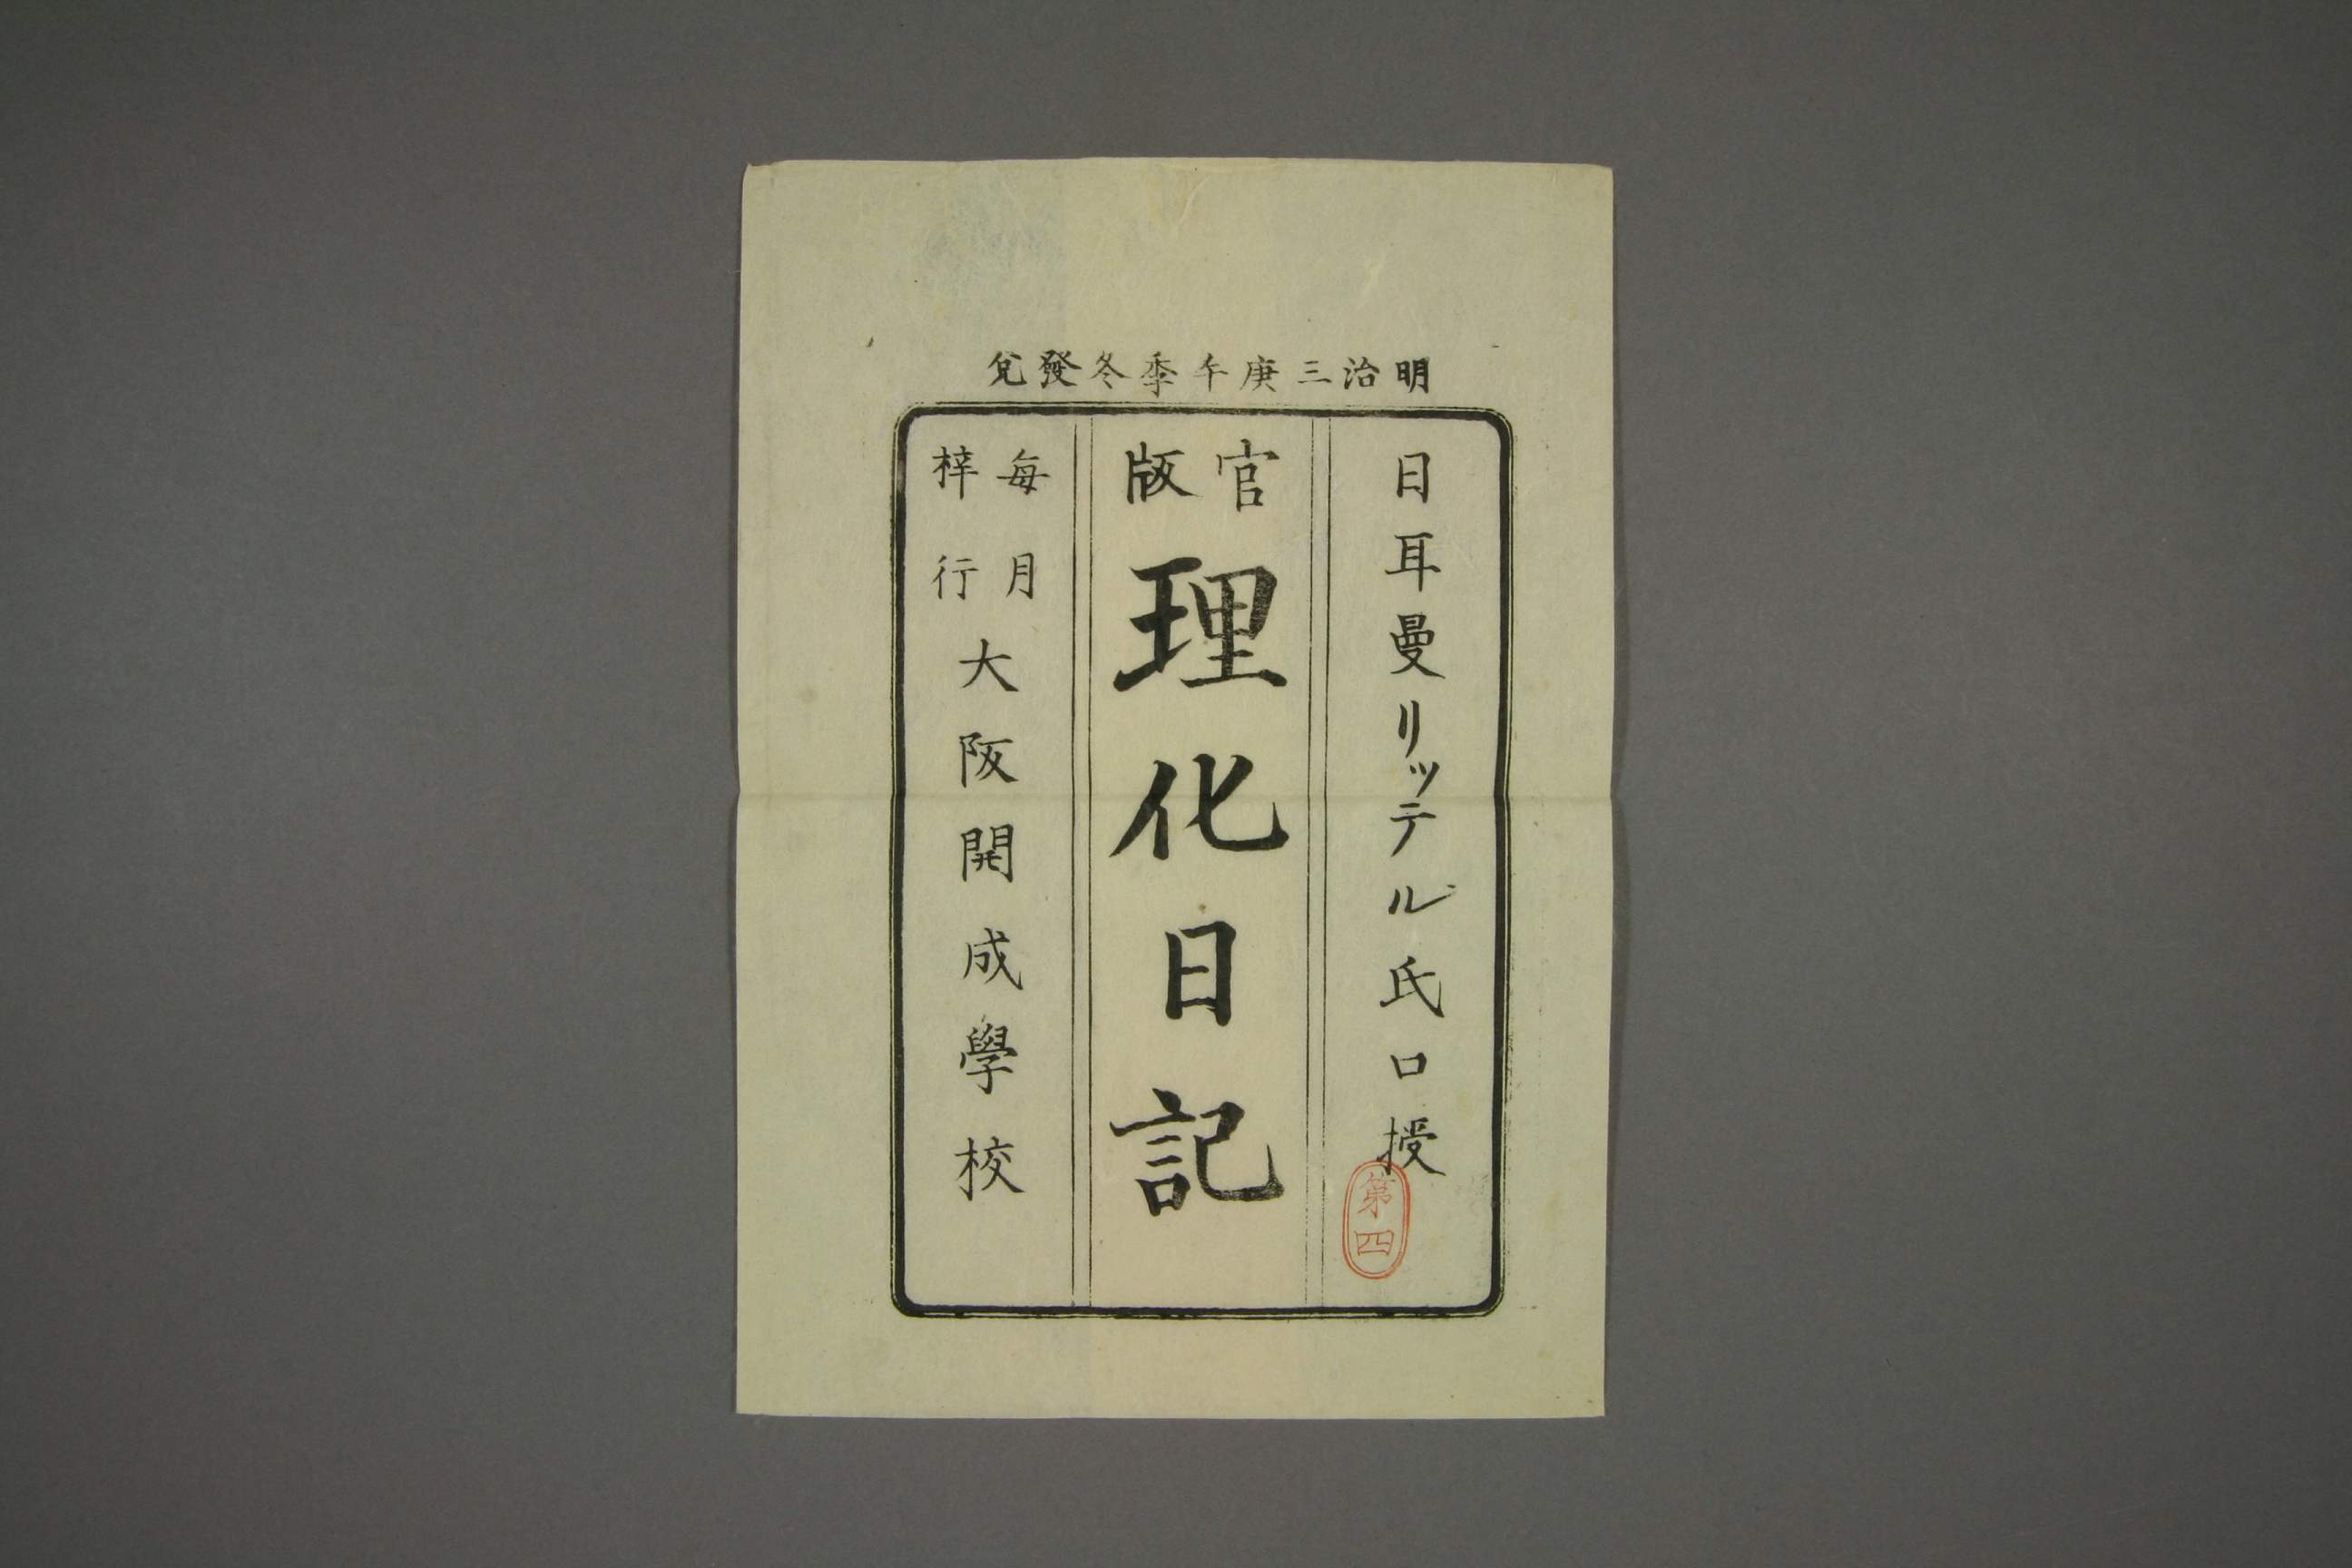 明治三庚午季冬發兌
日耳曼リッテル氏口授
第四
官版
理化日記
毎月梓行
大阪開成學校